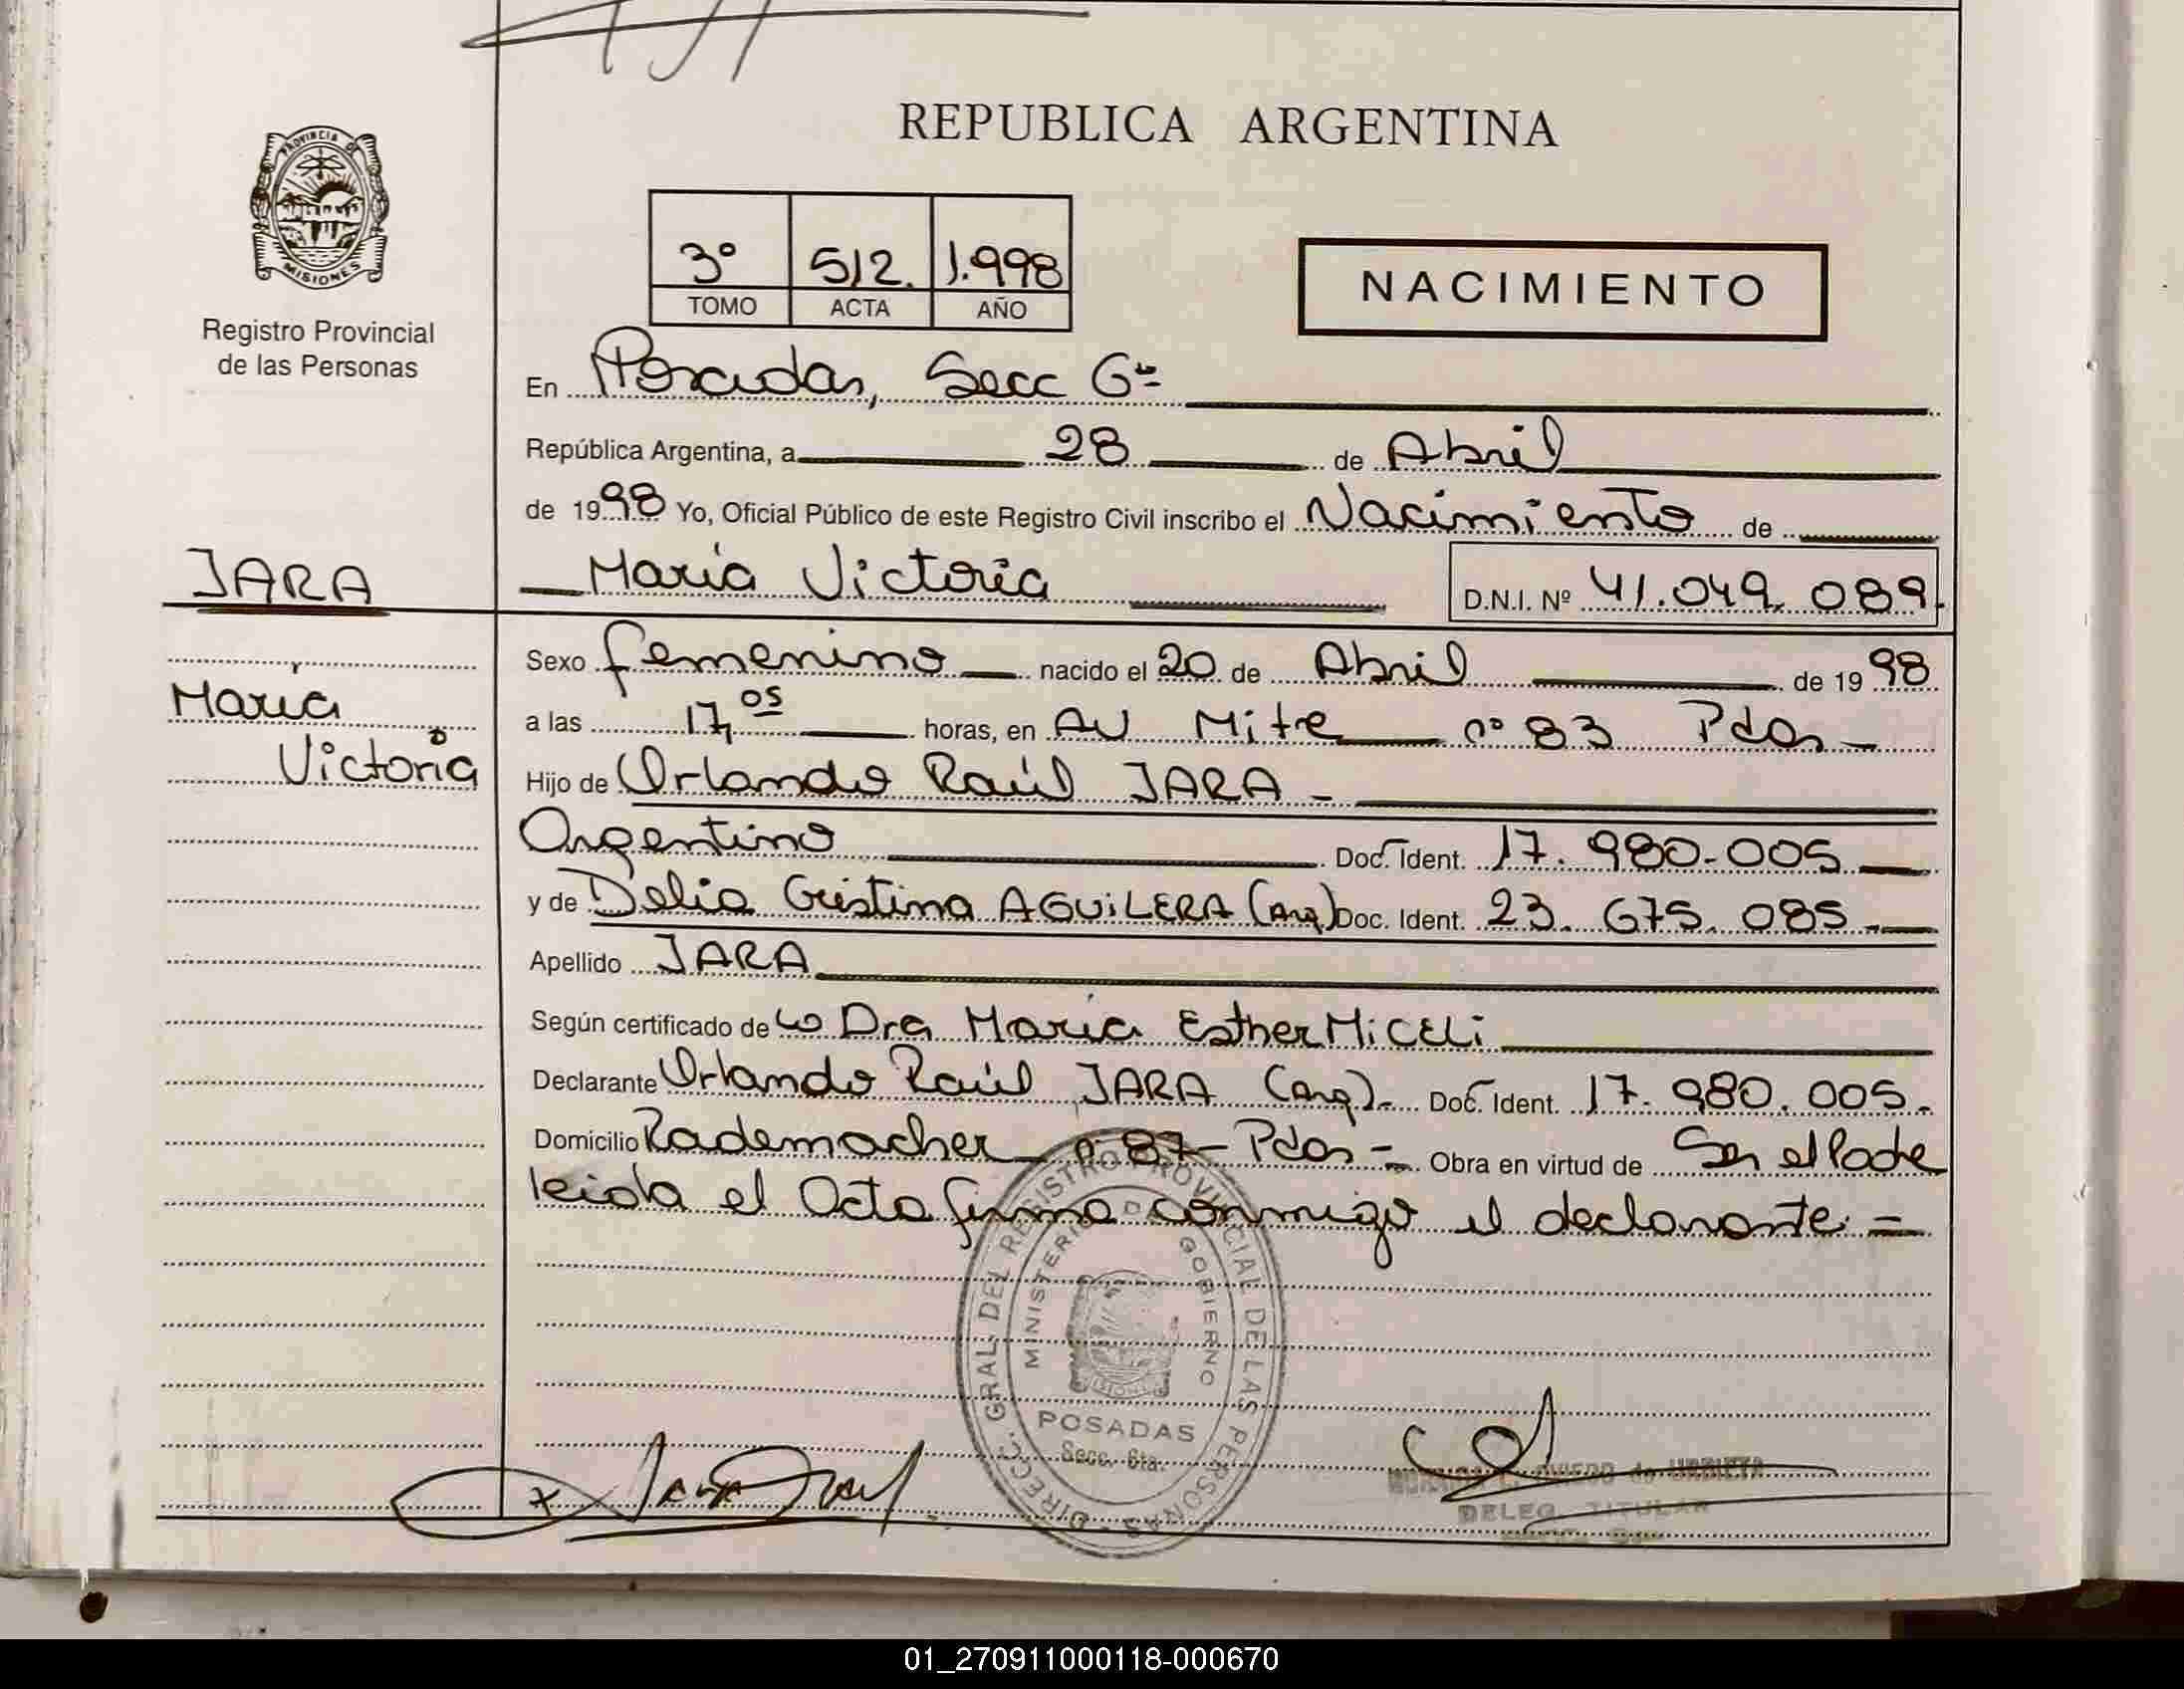 REPUBLICA ARGENTINA
PROVINCIA DE
MISIONES
Registro Provincial
de las Personas
3° 512. 1.998
TOMO ACTA AÑO
NACIMIENTO
En Posadas, Secc 6ta
República Argentina, a 28 de Abril
de 1998 Yo, Oficial Público de este Registro Civil inscribo el Nacimiento de
JARA
María Victoria D.N.I. Nº 41.049.089.
Sexo femenino nacido el 20 de Abril de 1998
María
Victoria
a las 17,05 horas, en AV Mitre n° 83 Pdas
Hijo de Orlando Raúl JARA
Argentino Doc. Ident. 17.980.005
y de Delia Cristina AGUILERA (Arg) Doc. Ident. 23.675.085
Apellido JARA
Según certificado de la Dra María Esther MiCELi
Declarante Orlando Raúl JARA (Arg) Doc. Ident. 17.980.005.
Domicilio Rademacher n° 87 Pdas Obra en virtud de Ser el Padre
leida el Acta firma conmigo el declarante =
DIRECC. GRAL. DEL REGISTRO PROVINCIAL DE LAS PERSONAS
MINISTERIO DE GOBIERNO
MISIONES
POSADAS
Secc. 6ta.
de URBIETA
DELEG. TITULAR
01_270911000118-000670